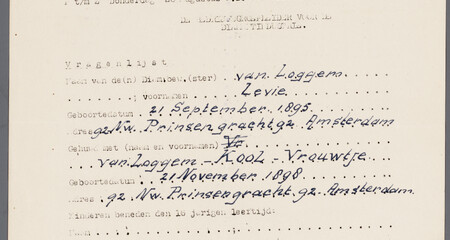 V r a g e n l i j s t
Naam van de(n) Diam.bew.(ster) van Loggem
; voornamen Levie
Geboortedatum : 21 September 1895
Adres 92. Nw. Prinsengracht 92. Amsterdam
Gehuwd met (naam en voornamen)
van Loggem - KOOL - Vrouwtje
Geboortedatum : 21 November 1898
Adres : 92. Nw. Prinsengracht. 92. Amsterdam
Kinderen beneden den 16 jarigen leeftijd:
Naam